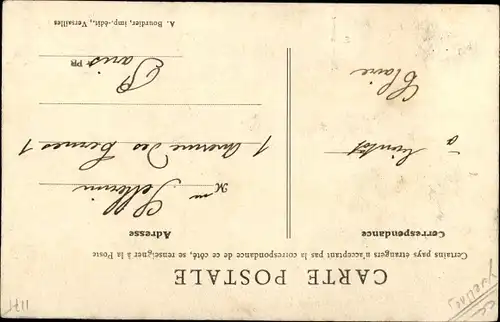 CARTE POSTALE
Certains pays étrangers n'acceptant pas la correspondance de ce côté, se renseigner à la Poste
Correspondance
Adresse
à bientôt
Claire
M
1 Avenue des Ternes 1
Paris
A. Bourdier, imp.-édit., Versailles
1171